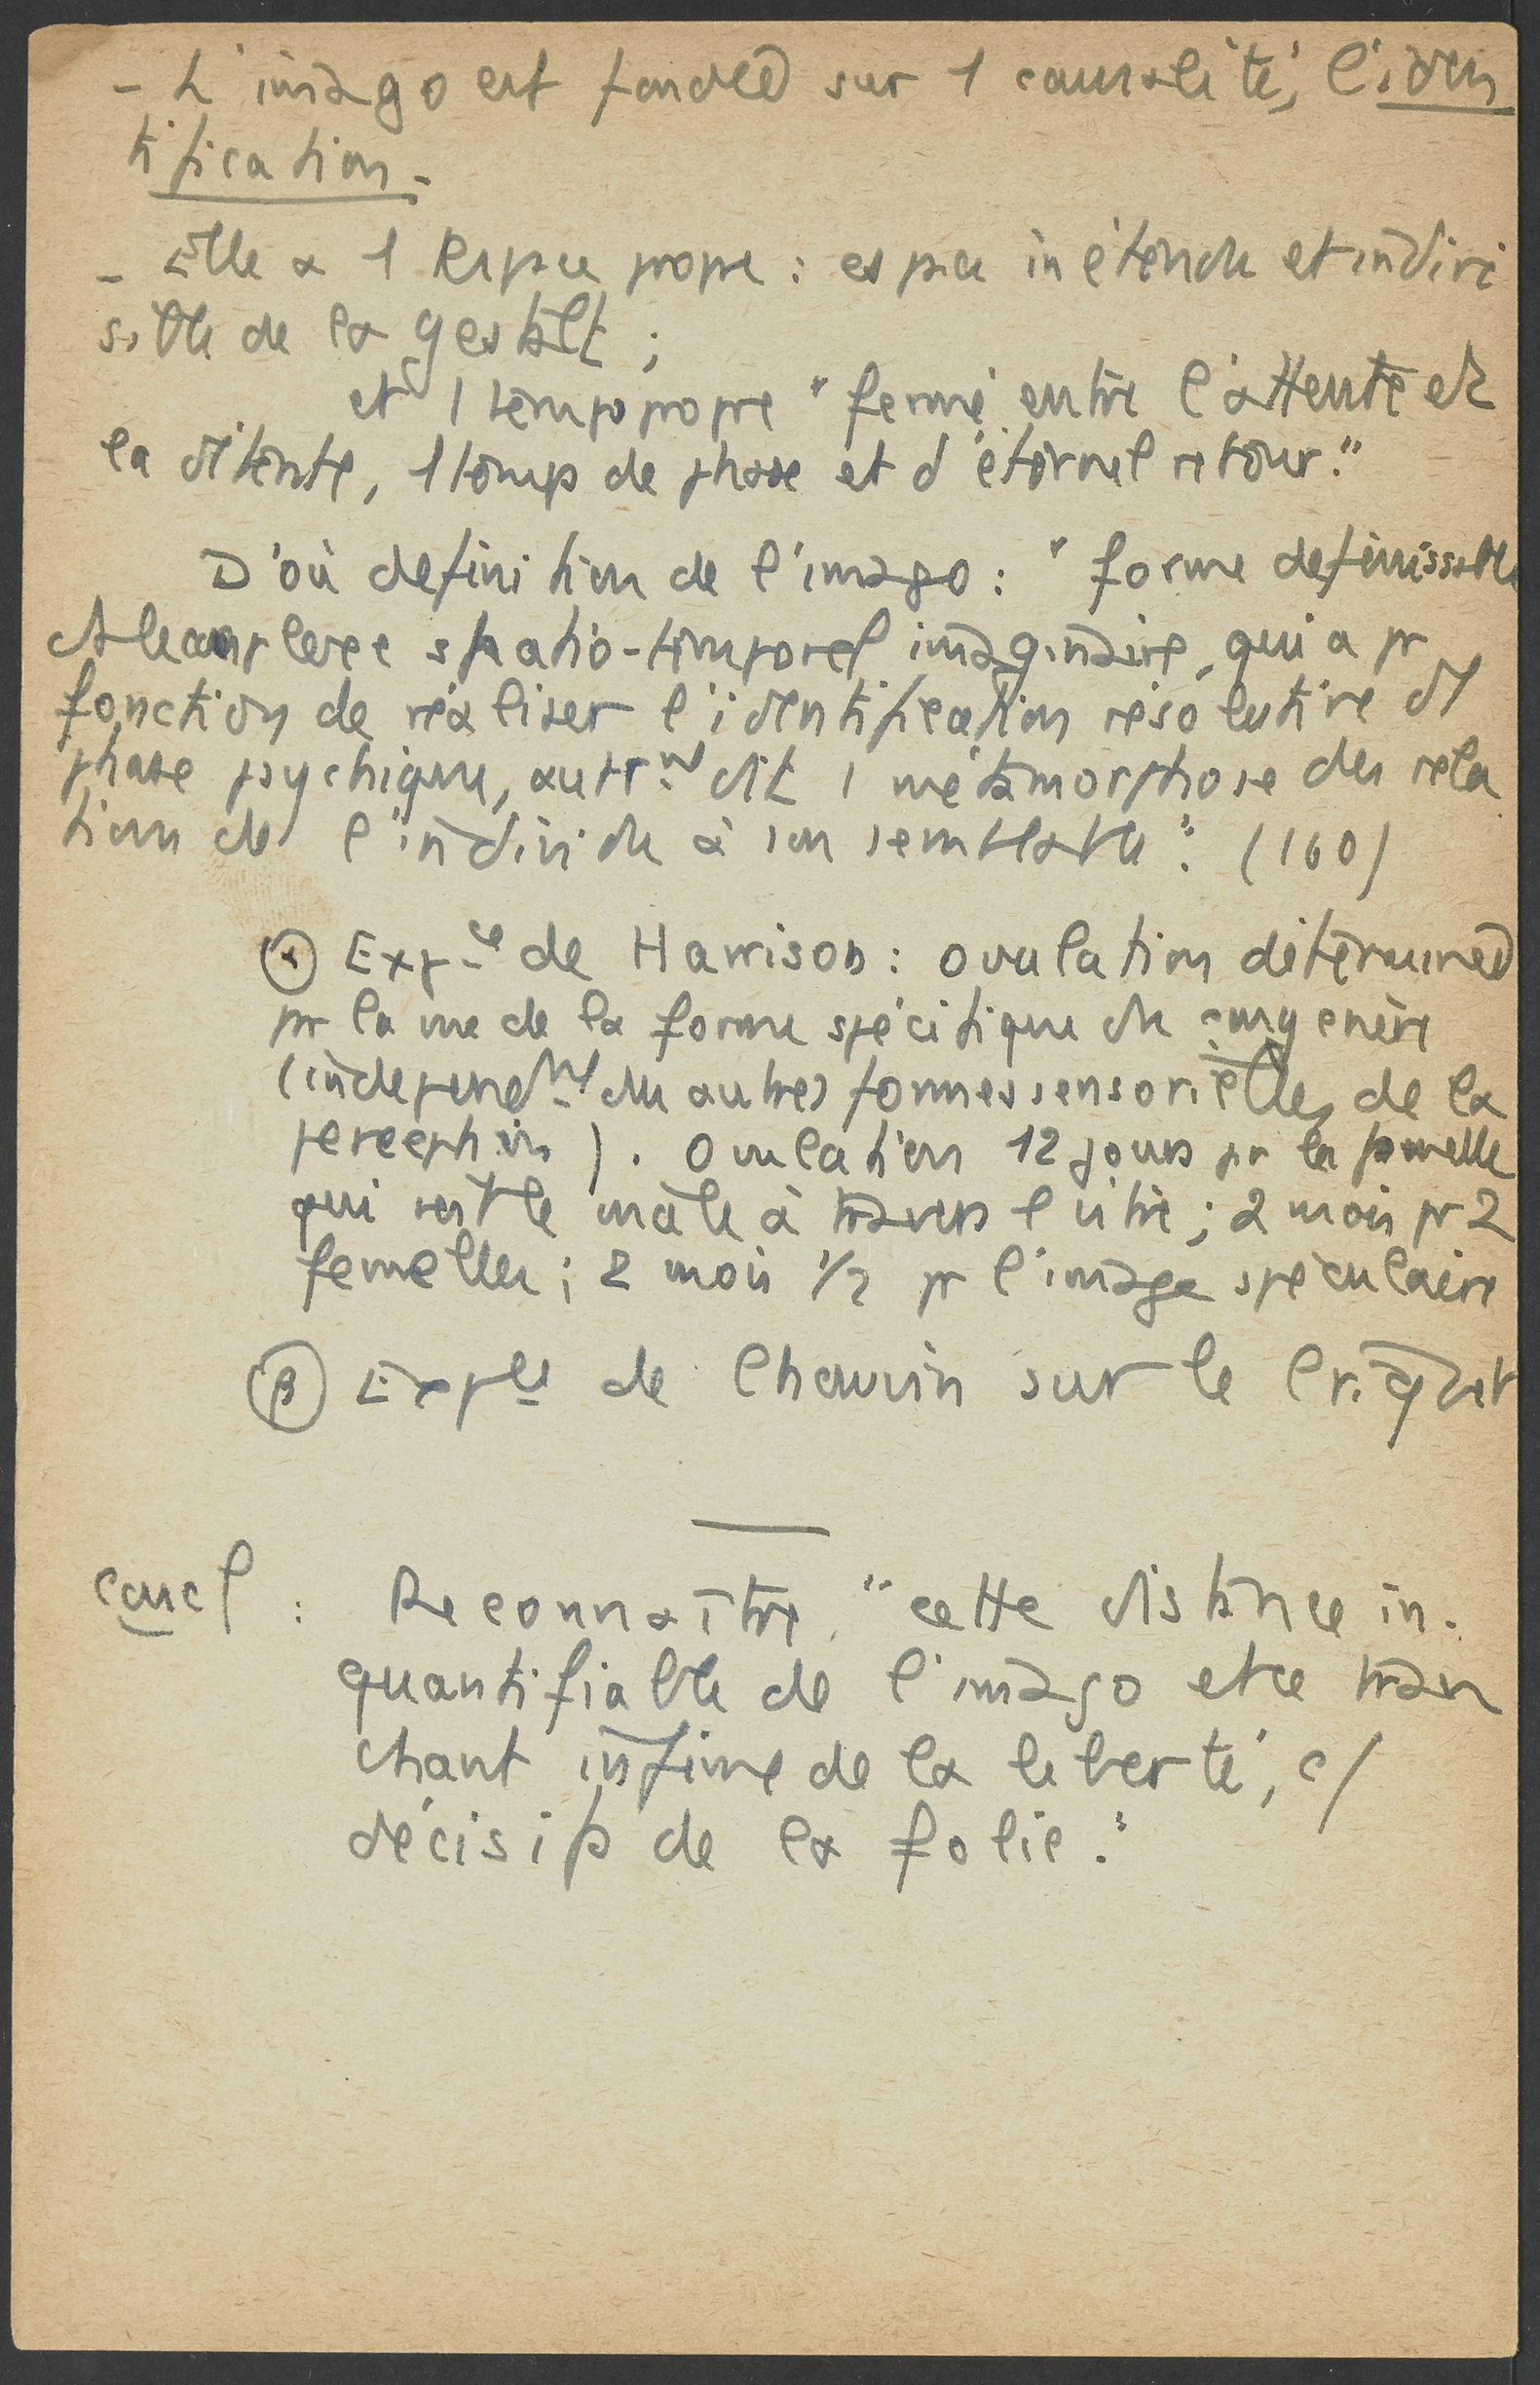 - L'imago est fondée sur 1 causalité, l'iden
tification.
- Elle a 1 espace propre : espace inétendu et indivi
sible de la gestalt ;
et 1 temps propre "fermé entre l'attente et
la détente, 1 temps de phase et d'éternel retour."
D'où definition de l'imago : "forme definissable
ds le complexe spatio-temporel imaginaire, qui a pr
fonction de réaliser l'identification résolutive d'1
phase psychique, autrmt dit 1 métamorphose des rela
tions de l'individu à son semblable". (160)
(α) Expce de Harrison : ovulation déterminée
pr la vue de la forme spécifique du congénère
(independmt des autres formes sensorielles de la
perception). Ovulation 12 jours pr la femelle
qui voit le mâle à travers l vitre ; 2 mois pr 2
femelles ; 2 mois 1/2 pr l'image spéculaire
(β) Expces de Chauvin sur le Criquet
Concl : Reconnaître "cette distance in.
quantifiable de l'imago et ce tran
chant infime de la liberté, c/
décisifs de la folie."